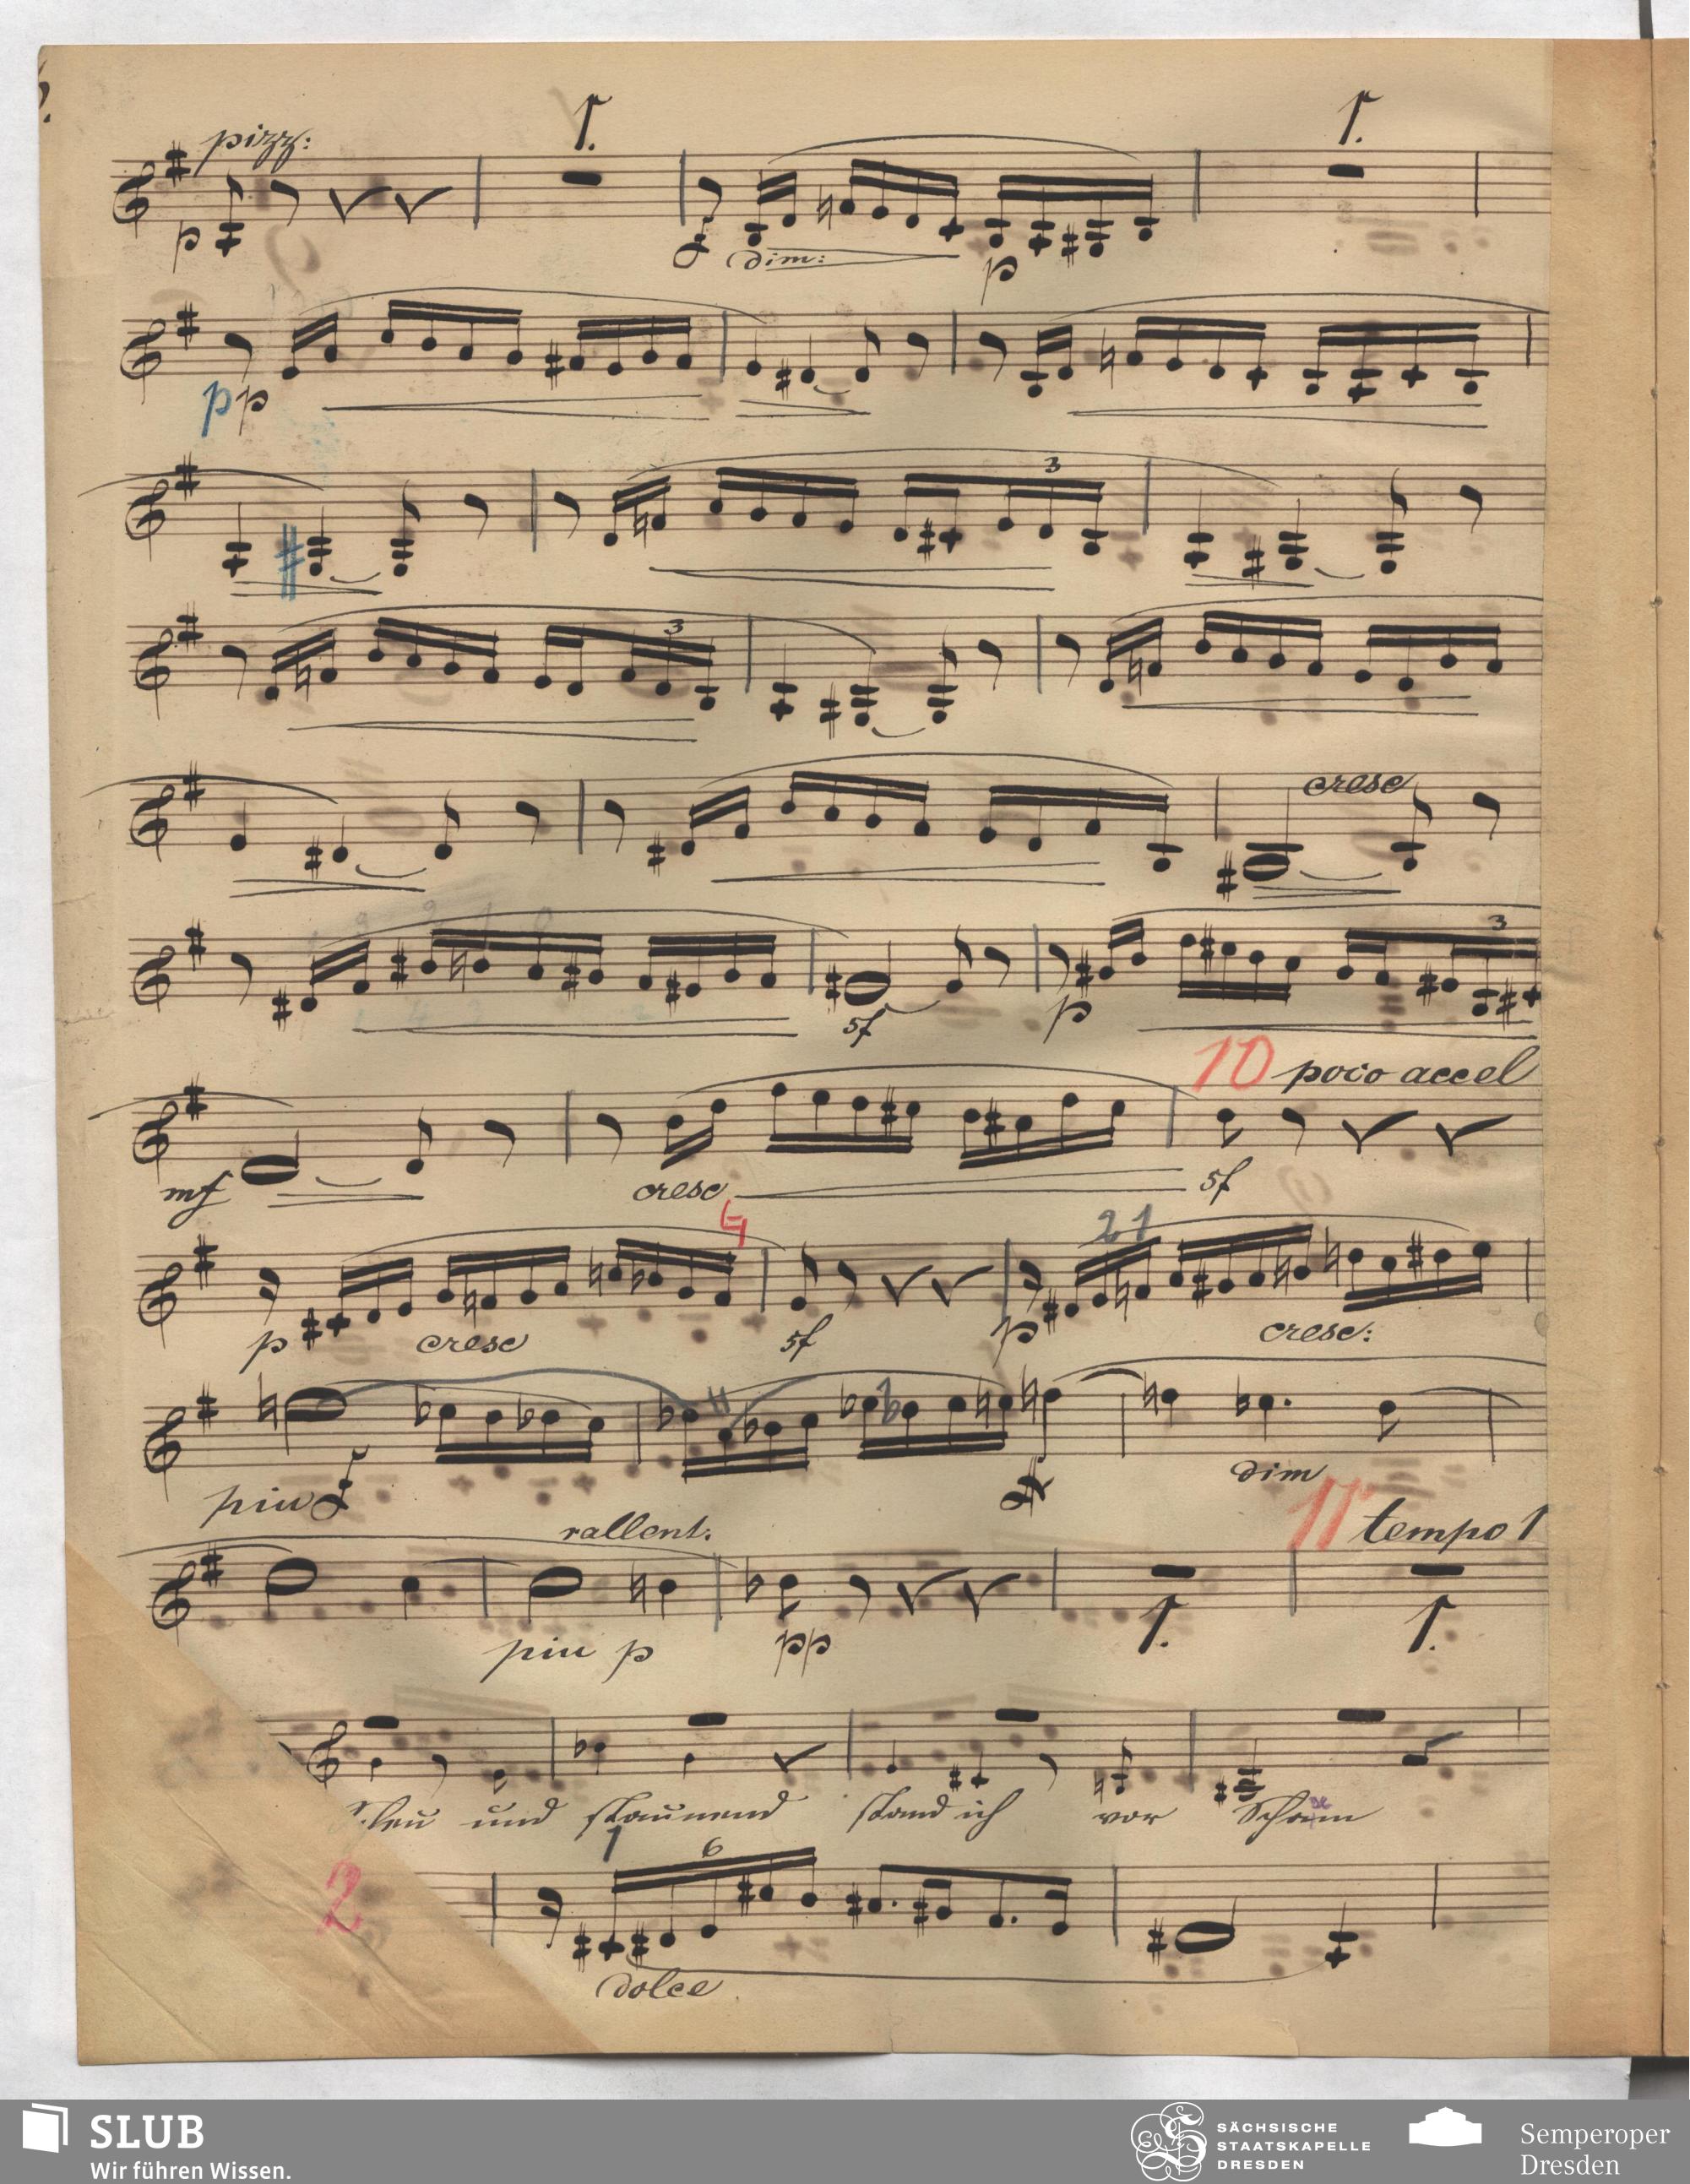 pizz:
1. 1.
p f dim: p
pp
3
3
cresc
3
sf p
10 poco accel
mf cresc sf
4 2 1
p cresc sf p cresc:
piu f ff dim
rallent. 11 tempo 1
piu p pp 1. 1.
und staunend stand ich vor
2 1 6
dolce
SLUB
Wir führen Wissen.
SÄCHSISCHE
STAATSKAPELLE
DRESDEN
Semperoper
Dresden